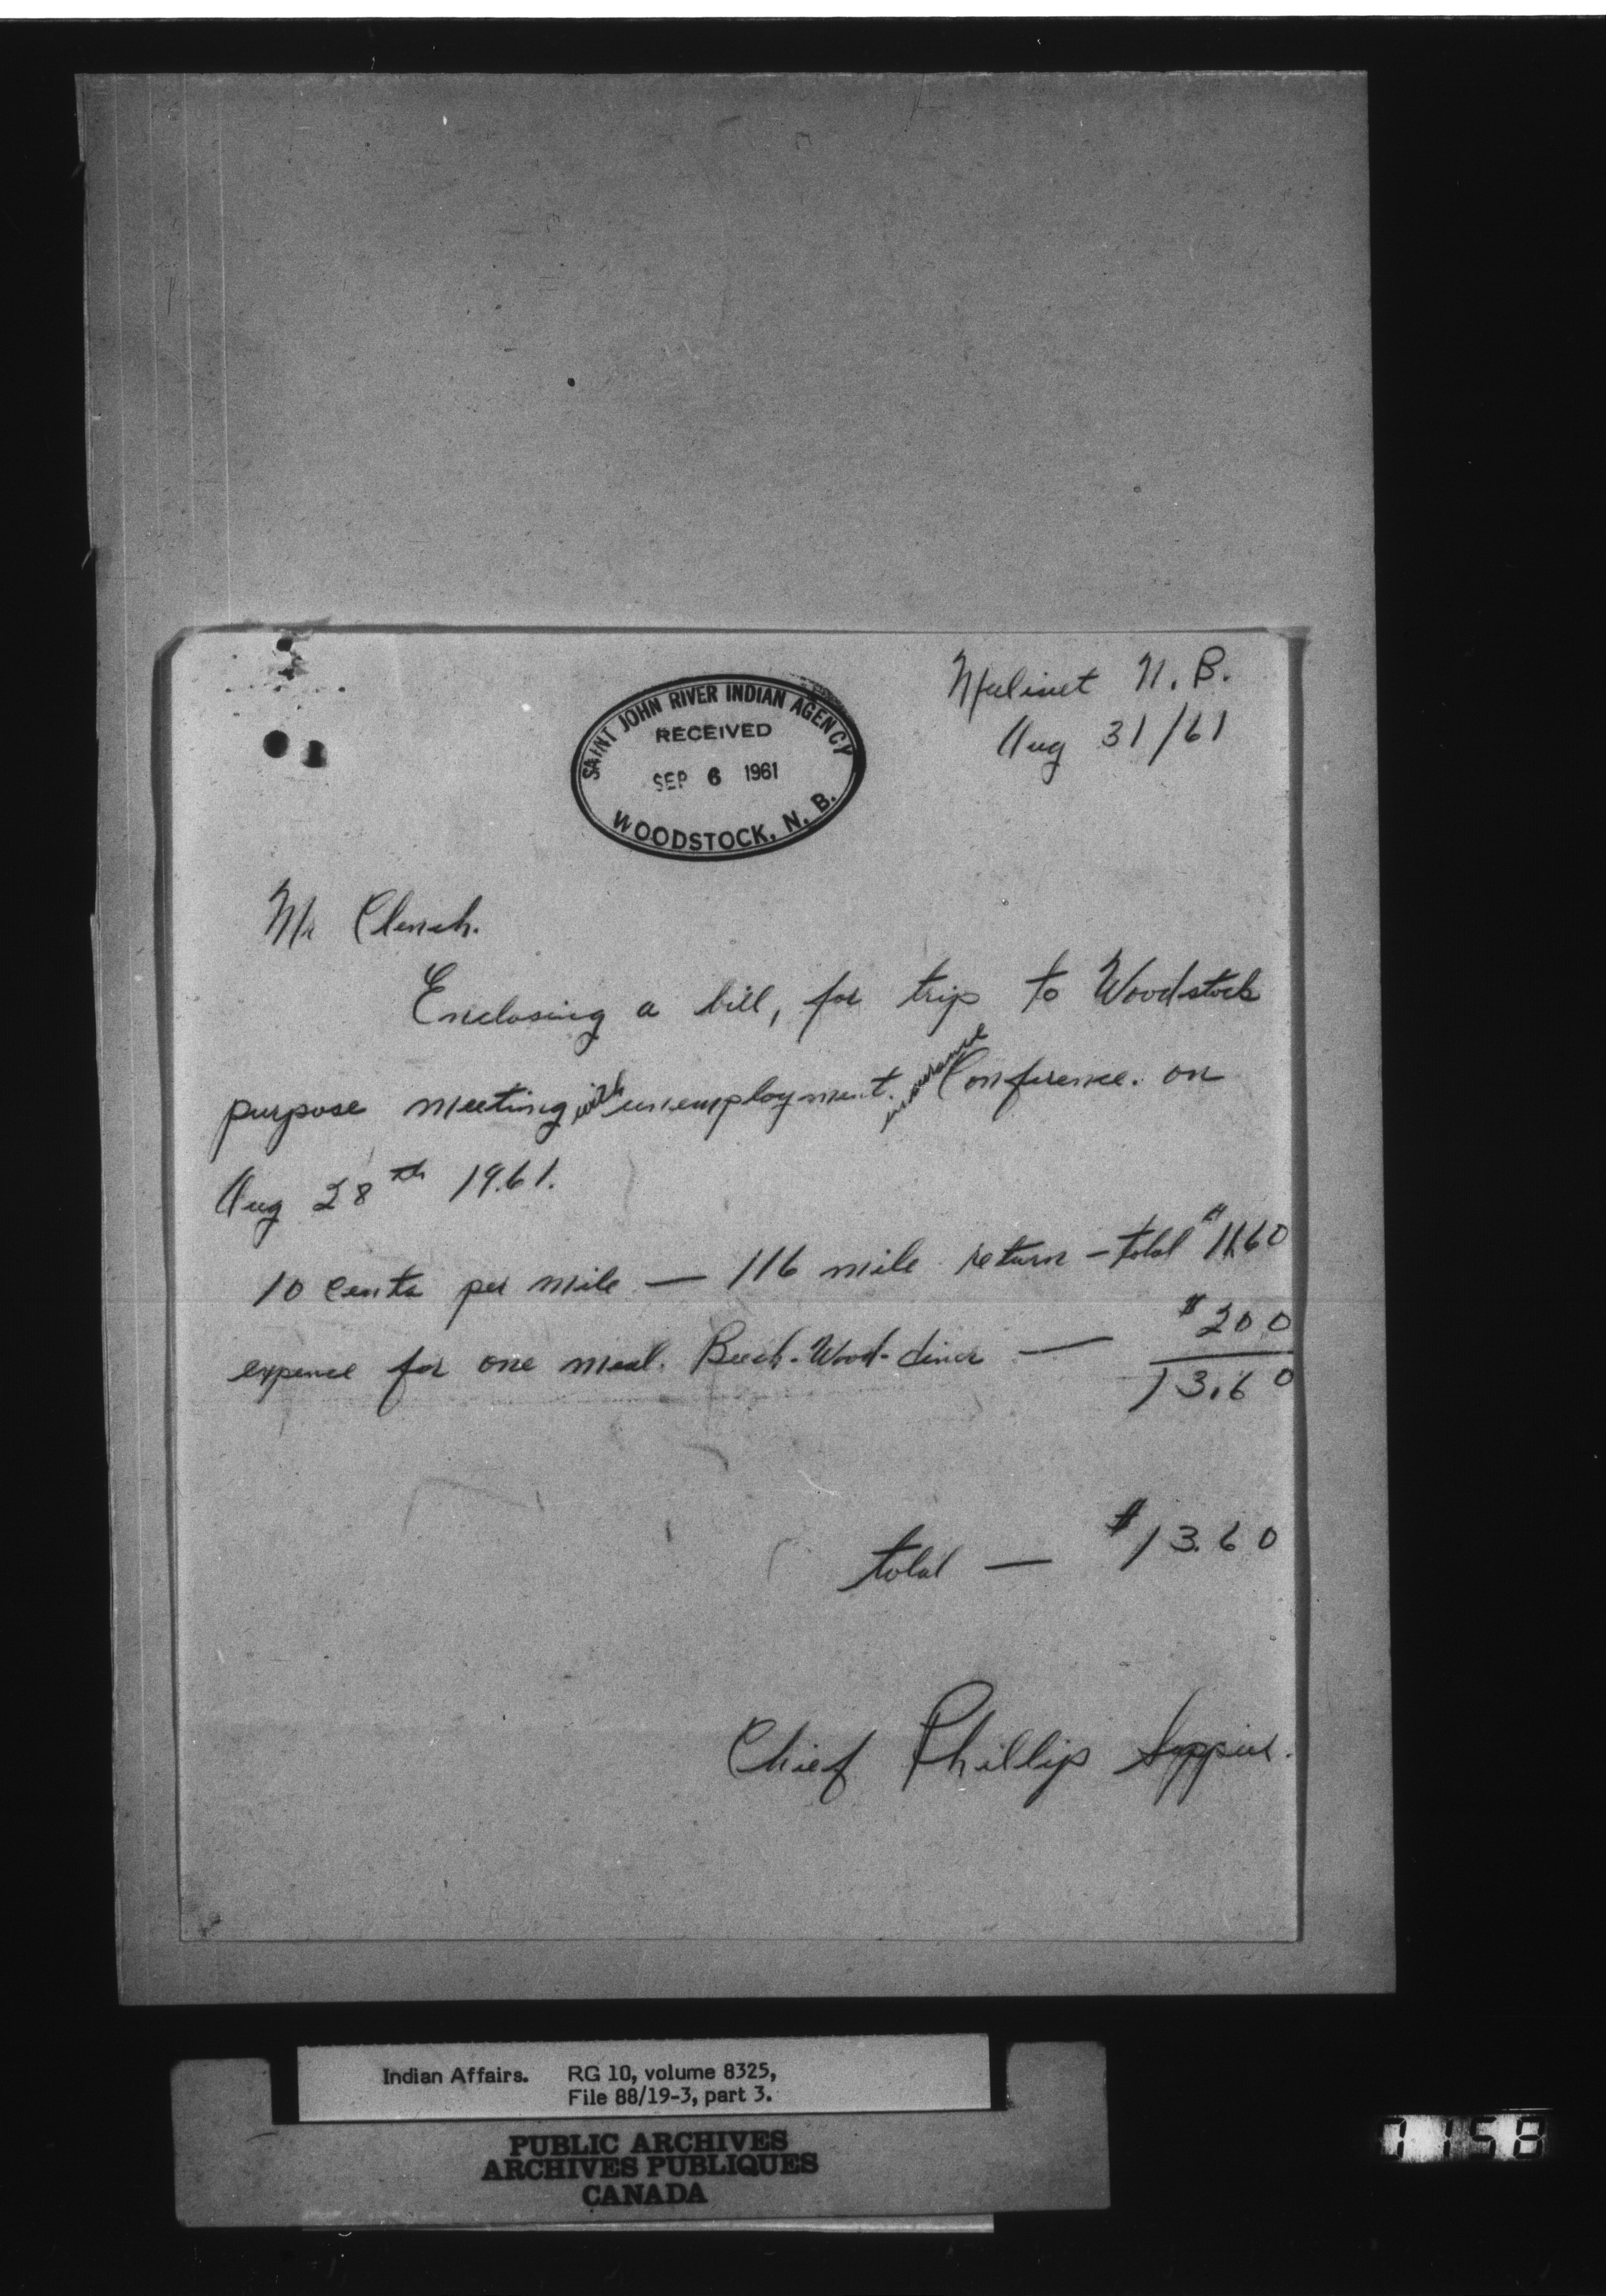 Maliseet N. B.
Aug 31/61
SAINT JOHN RIVER INDIAN AGENCY
RECEIVED
SEP 6 1961
WOODSTOCK, N. B.
Mr Clench.
Enclosing a bill, for trip to Woodstock
purpose meeting with unemployment. insurance Conference. on
Aug 28th 1961.
10 cents per mile — 116 mile return – total $11.60
expence for one meal. Beech-Wood-diner — $2 00
13.60
total — $13.60
Chief Phillip
Indian Affairs. RG 10, volume 8325,
File 88/19-3, part 3.
PUBLIC ARCHIVES
ARCHIVES PUBLIQUES
CANADA
1158